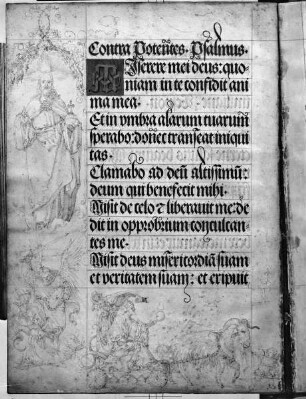 Contra Potentes. Psalmus.
Miserere mei deus: quo-
niam in te confidit ani
ma mea.
Et in vmbra alarum tuarum
sperabo: donec transeat iniqui
tas.
Clamabo ad deū altissimū:
deum qui benefecit mihi.
Misit de celo & liberauit me: de
dit in opprobrium conculcan-
tes me.
Misit deus misericordiā suam
et veritatem suam: et eripuit